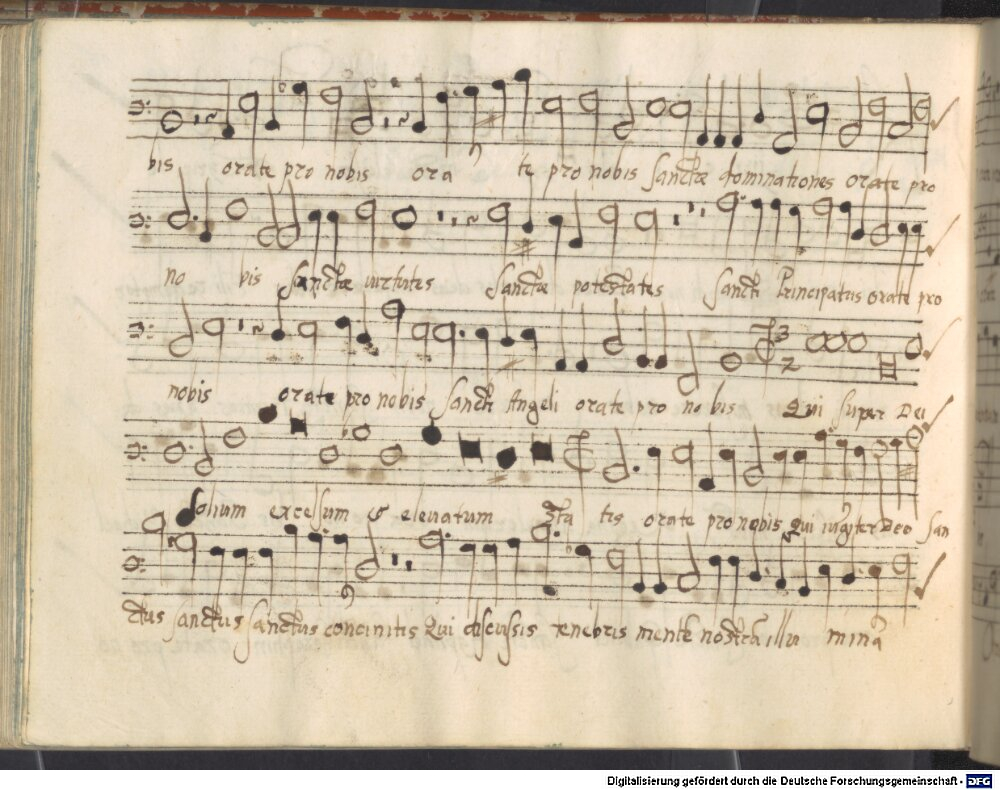 bis orate pro nobis ora te pro nobis Sanctæ dominationes orate pro
no bis Sanctæ virtutes Sanctæ potestates Sancti Principatus orate pro
nobis orate pro nobis Sancti Angeli orate pro no bis Qui super Dei
3
2
solium excelsum & eleuatum Sta tis orate pro nobis Qui iugiter Deo San
ctus sanctus Sanctus concinitis Qui discussis tenebris mente nostrā illu minā
Digitalisierung gefördert durch die Deutsche Forschungsgemeinschaft - DFG